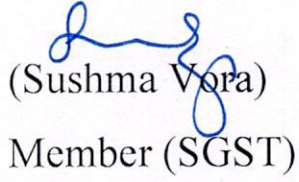 (Sushma Vora)
Member (SGST)